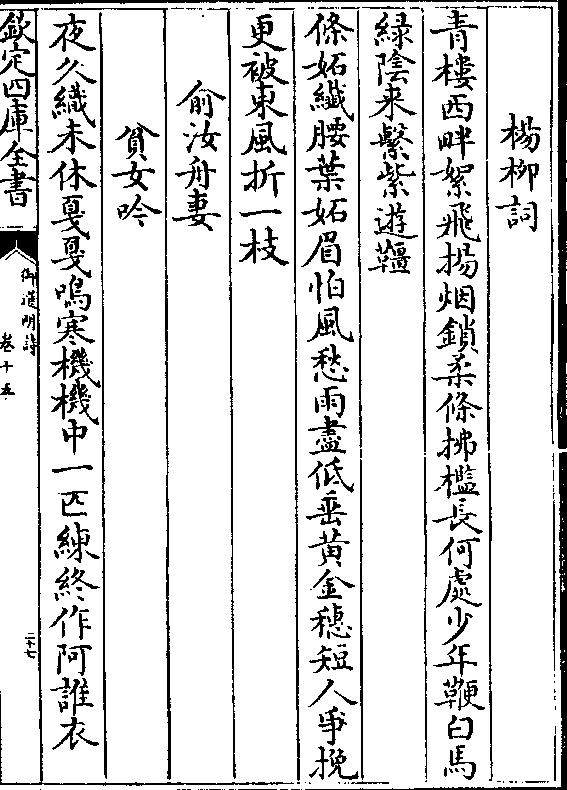 楊柳詞
青樓西畔絮飛揚烟鎖柔條拂檻長何處少年鞭白馬
緑陰来繫紫遊韁
條妬纎腰葉妬眉怕風愁雨盡低垂黄金穗短人爭挽
更被東風折一枝
俞汝舟妻
貧女吟
夜久織未休戛戛鳴寒機機中一匹練終作阿誰衣
欽定四庫全書
御選明詩
卷十五
二十七